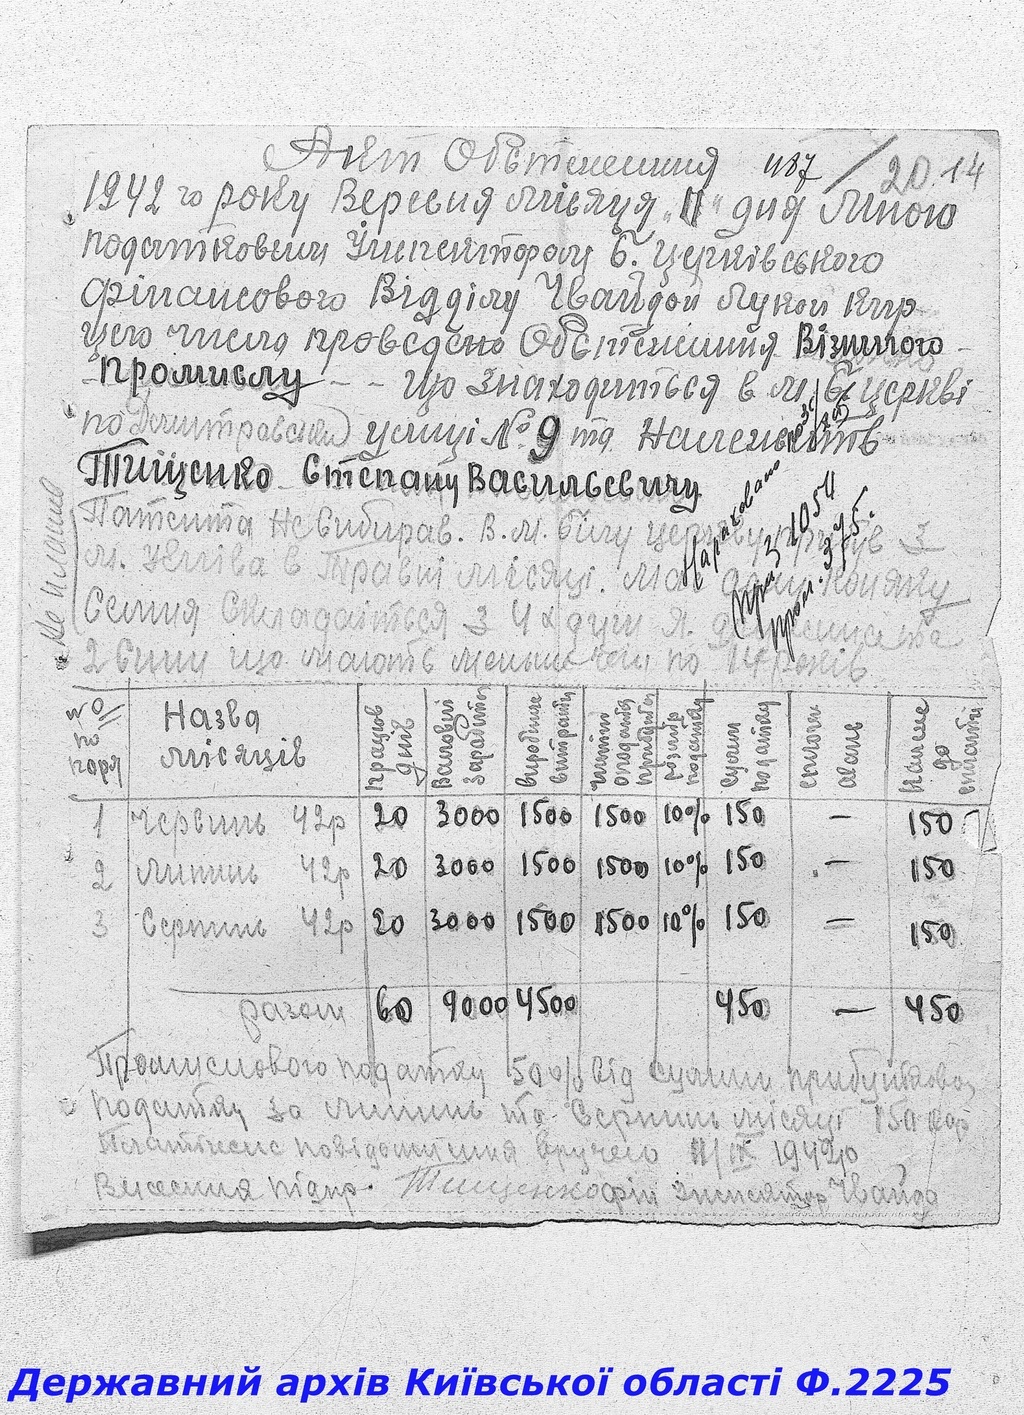 Акт Обстеження 1187/2014
1942 го року Вересня місяця „11" дня Мною
податковим Інспектором Б. Церківського
фінансового Відділу Чвайдой Лукой Кир
цего числа проведено Обстеження Візничого
промислу - - що знаходиться в м. Б Церкві
по Дмитравській улиці № 9 та Належить
Тищенко Степану Васильевичу
Патента Не Вибирав. В. М. Білу церкву прибув З
м. в Травні місяці. Має одну коняку
Семия Складаїться З 4х душ Я. та
2 Сини що мають меньш чем по 14 років
Не плачив
Нараховано
№ по поря
Назва місяців
працюв днів
Валовий Заработок
виробнич витрати
оподатк прибуток
розмір податку
Сума податку
сплочен аванс
Належе до сплати
1 Червинь 42р 20 3000 1500 1500 10% 150 — 150
2 Липинь 42р 20 3000 1500 1500 10% 150 — 150
3 Серпинь 42р 20 3000 1500 1500 10% 150 — 150
разом 60 9000 4500 450 — 450
Промислового податку 50% від суми прибутково
податку за липинь та Серпинь місяці 150 кар
Платіжне повідомлиния вручено 11/IX 1942р
підпр. Тищенко фін Інспектор Чвайда
Державний архів Київської області Ф.2225